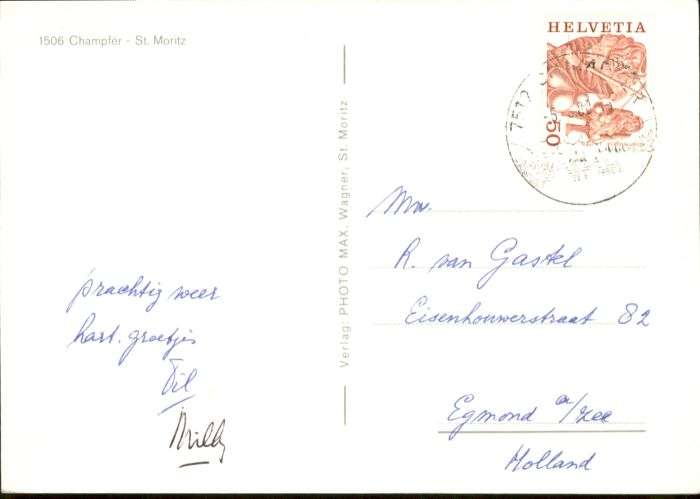 1506 Champfèr - St. Moritz
prachtig weer
hart. groetjes
Til
Willy
Verlag: PHOTO MAX. Wagner, St. Moritz
HELVETIA
50
7512
Mw.
R. van Gastel
Eisenhouwerstraat 82
Egmond a/zee
Holland